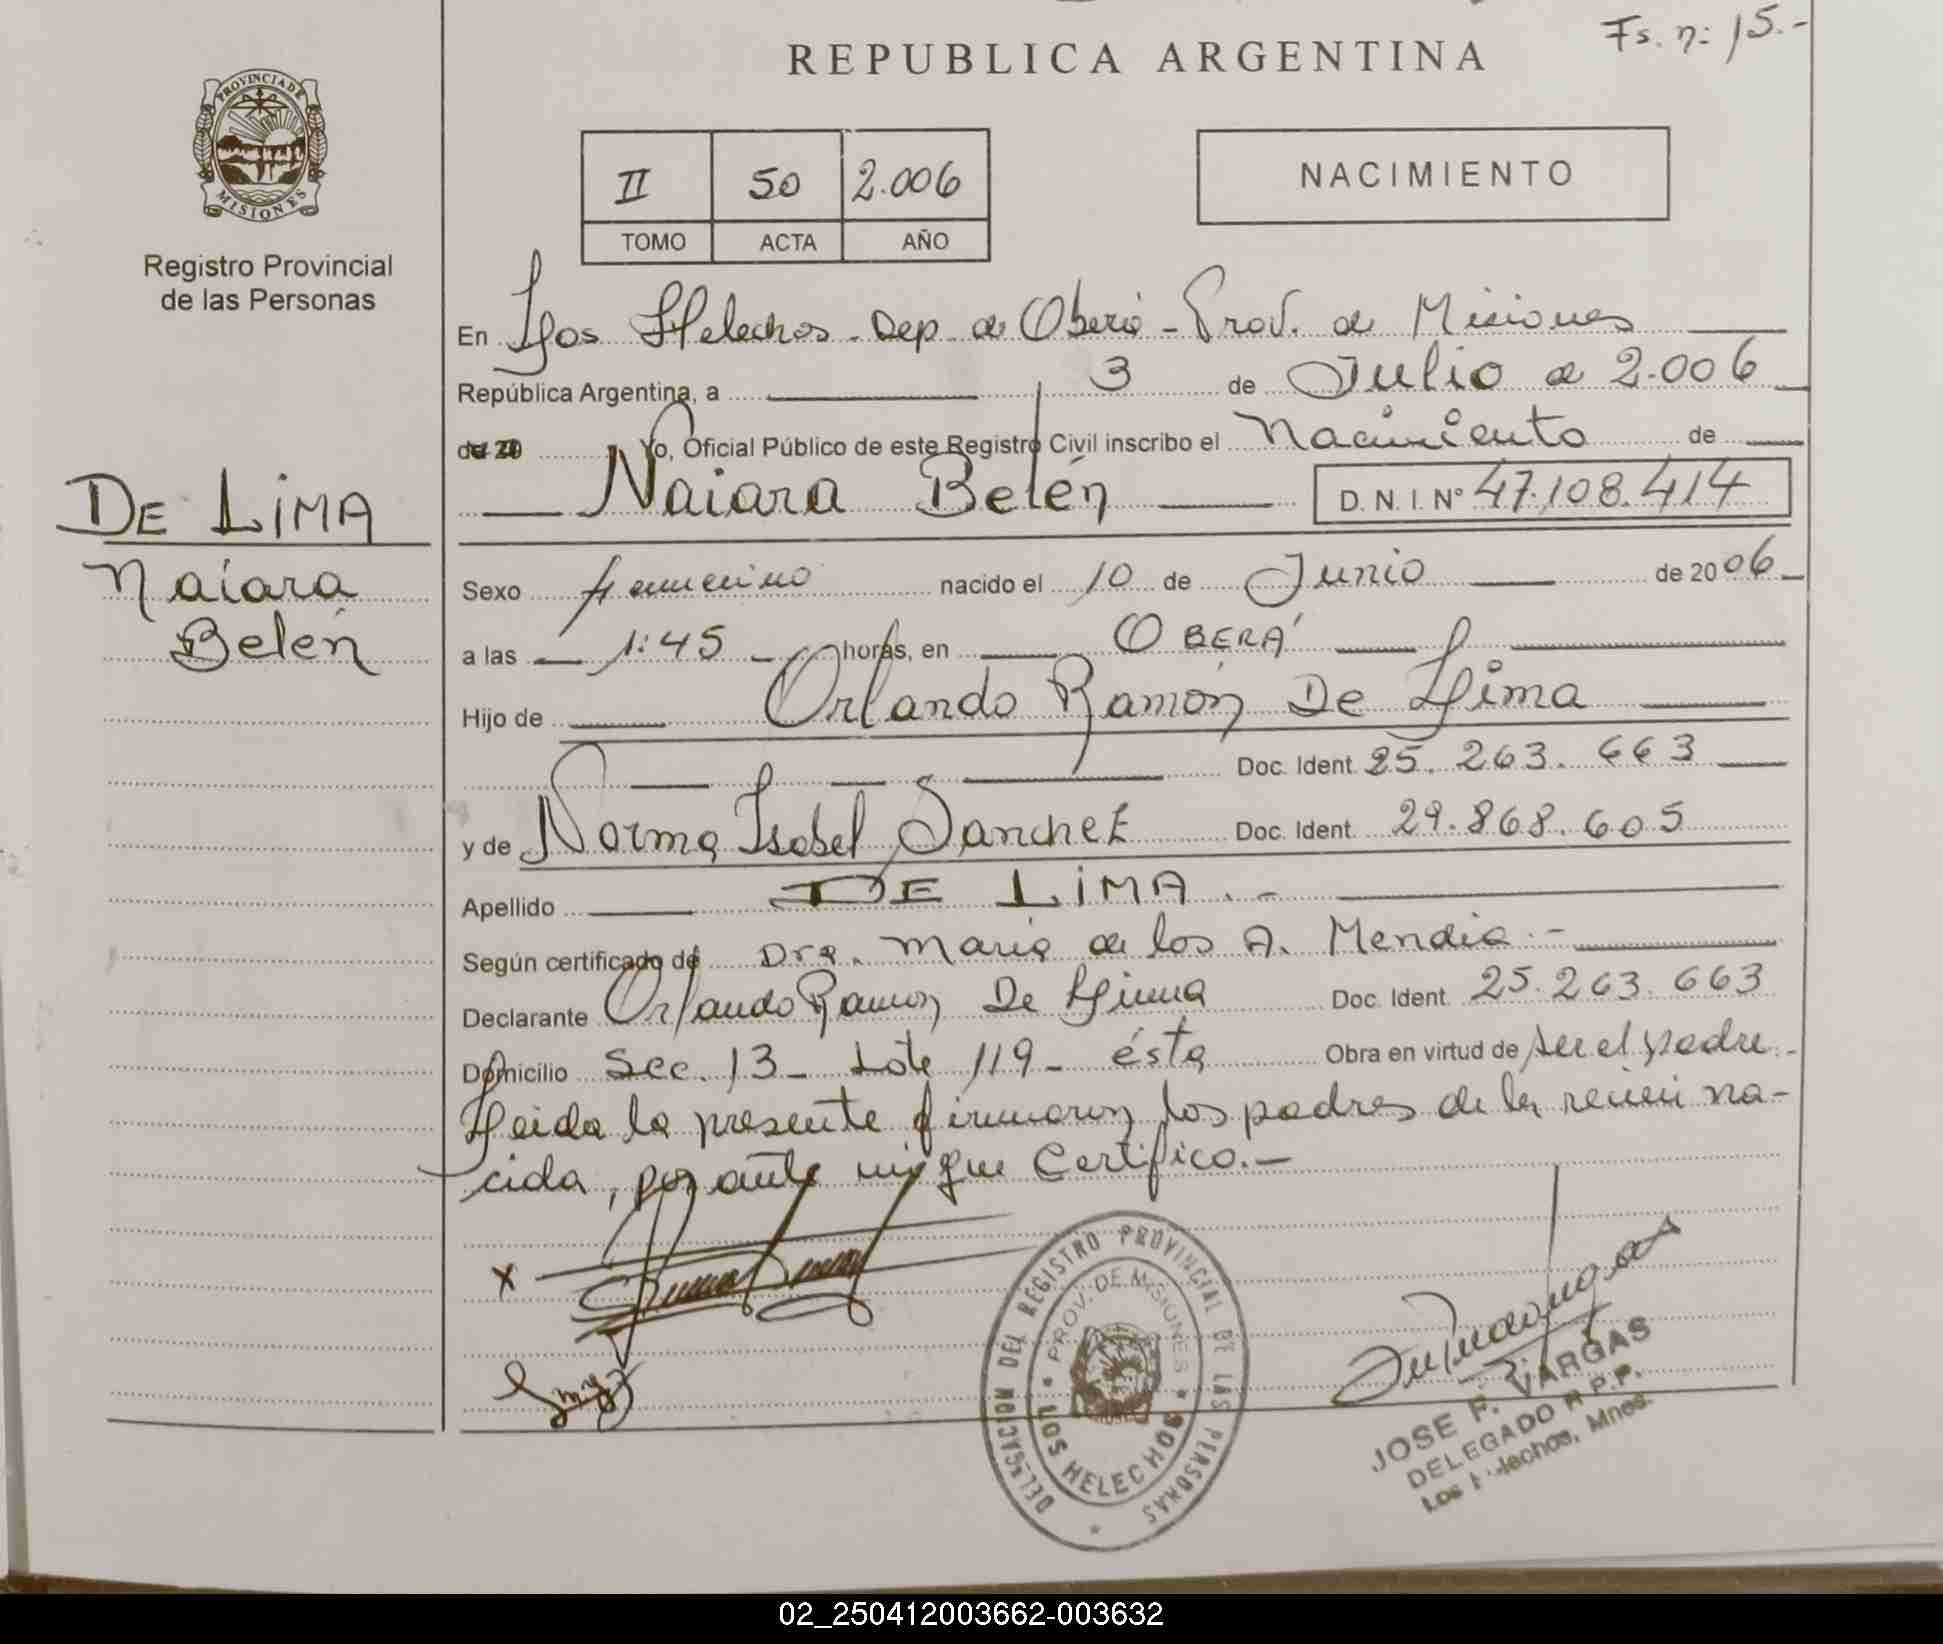 Fs. n: 15.-
REPUBLICA ARGENTINA
PROVINCIA DE
MISIONES
Registro Provincial
de las Personas
II 50 2.006
TOMO ACTA AÑO
NACIMIENTO
En Los Helechos - Dep. de Oberá - Prov. de Misiones
República Argentina, a 3 de Julio de 2.006
de 20 Yo, Oficial Público de este Registro Civil inscribo el Nacimiento de
Naiara Belén D.N.I. Nº 47.108.414
DE LIMA
Naiara
Belén
Sexo femenino nacido el 10 de Junio de 2006
a las 1:45 horas, en OBERÁ
Hijo de Orlando Ramón De Lima
Doc. Ident. 25.263.663
y de Norma Isabel Sanchez Doc. Ident. 29.868.605
Apellido DE LIMA.-
Según certificado de Dra. Maria de los A. Mendia.-
Declarante Orlando Ramon De Lima Doc. Ident. 25.263.663
Domicilio Sec. 13 - Lote 119 - ésta Obra en virtud de ser el padre.-
Leida la presente firmaron los padres de la recien na-
cida, por ante mi que Certifico.-
X
DELEGACION DEL REGISTRO PROVINCIAL DE LAS PERSONAS
PROV. DE MISIONES
LOS HELECHOS
JOSE F. VARGAS
DELEGADO R.P.P.
Los Helechos, Mnes.
02_250412003662-003632